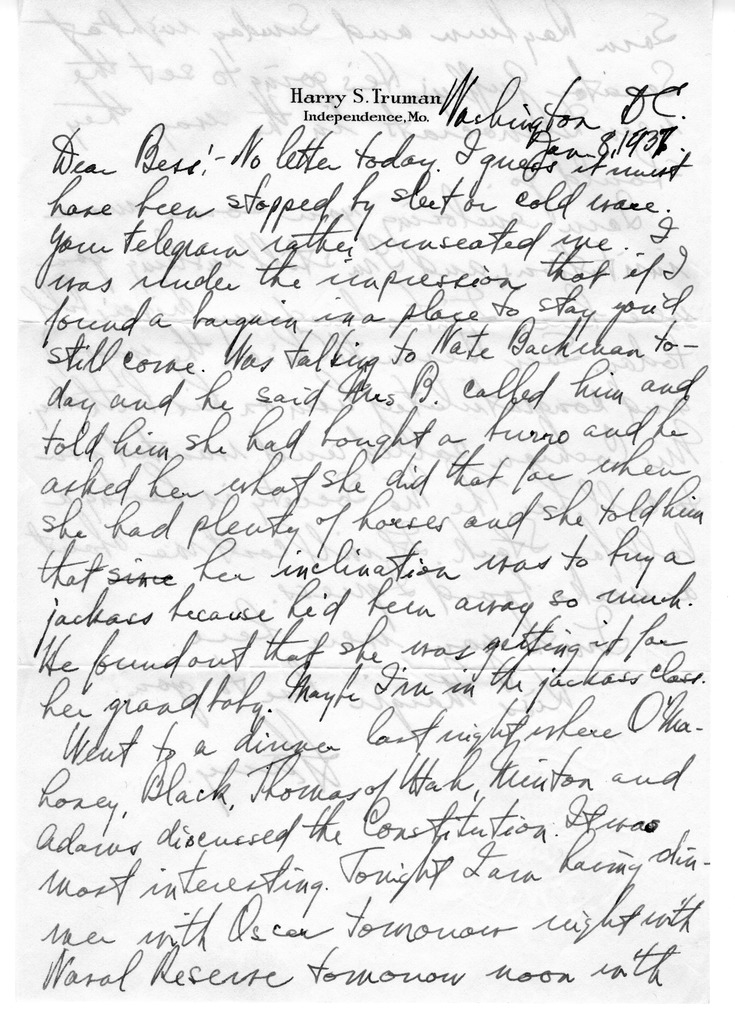 Harry S. Truman
Independence, Mo.
Washington D.C.
Jan 8, 1937.
Dear Bess:- No letter today. I guess it must
have been stopped by sleet or cold wave.
Your telegram rather unseated me. I
was under the impression that if I
found a bargain in a place to stay you'd
still come. Was talking to Nate Bachman to-
day and he said Mrs B. called him and
told him she had bought a burro and he
asked her what she did that for when
she had plenty of horses and she told him
that since her inclination was to buy a
jackass because he'd been away so much.
He found out that she was getting it for
her grand baby. Maybe I'm in the jackass class.
Went to a dinner last night where O'Ma-
honey, Black, Thomas of Utah, Minton and
Adams discussed the Constitution. It was
most interesting. Tonight I am having din-
ner with Oscar tomorrow night with
Naval Reserve tomorrow noon with